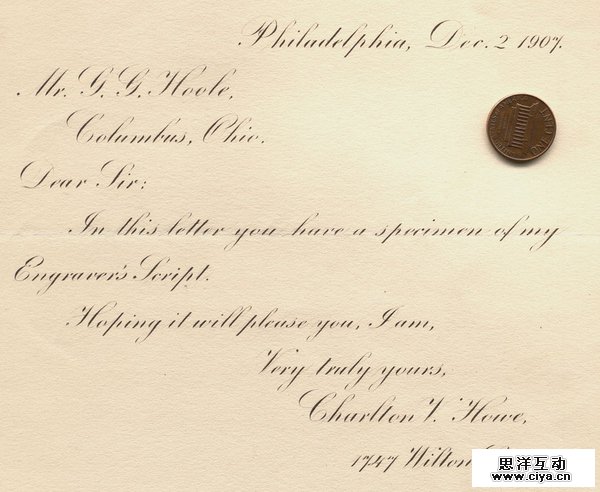 Philadelphia, Dec. 2 1907.
Mr. G. G. Hoole,
Columbus, Ohio.
Dear Sir:
In this letter you have a specimen of my
Engraver's Script.
Hoping it will please you, I am,
Very truly yours,
Charlton V. Howe,
1747 Wilton
ONE CENT
思洋互动
www.ciya.cn